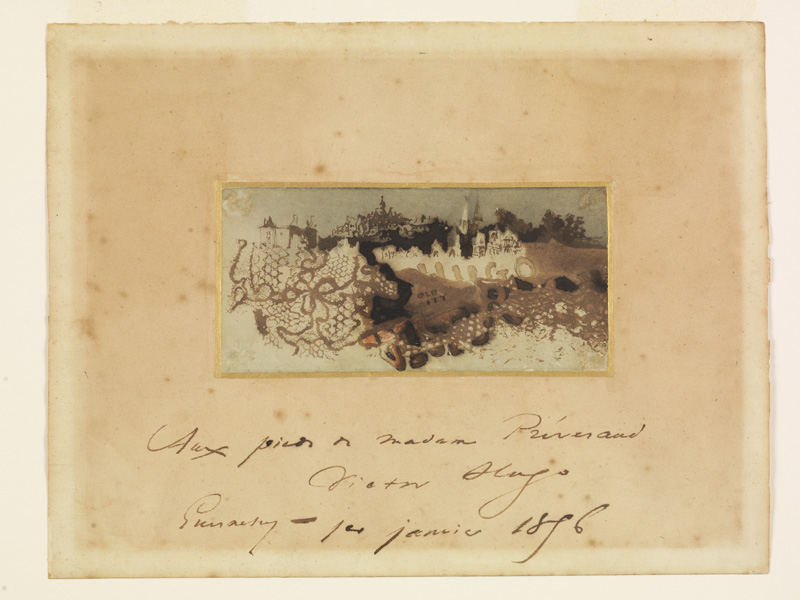 HUGO
OLD
Aux pieds de madame Préveraud
Victor Hugo
Guernesey – 1er janvier 1856